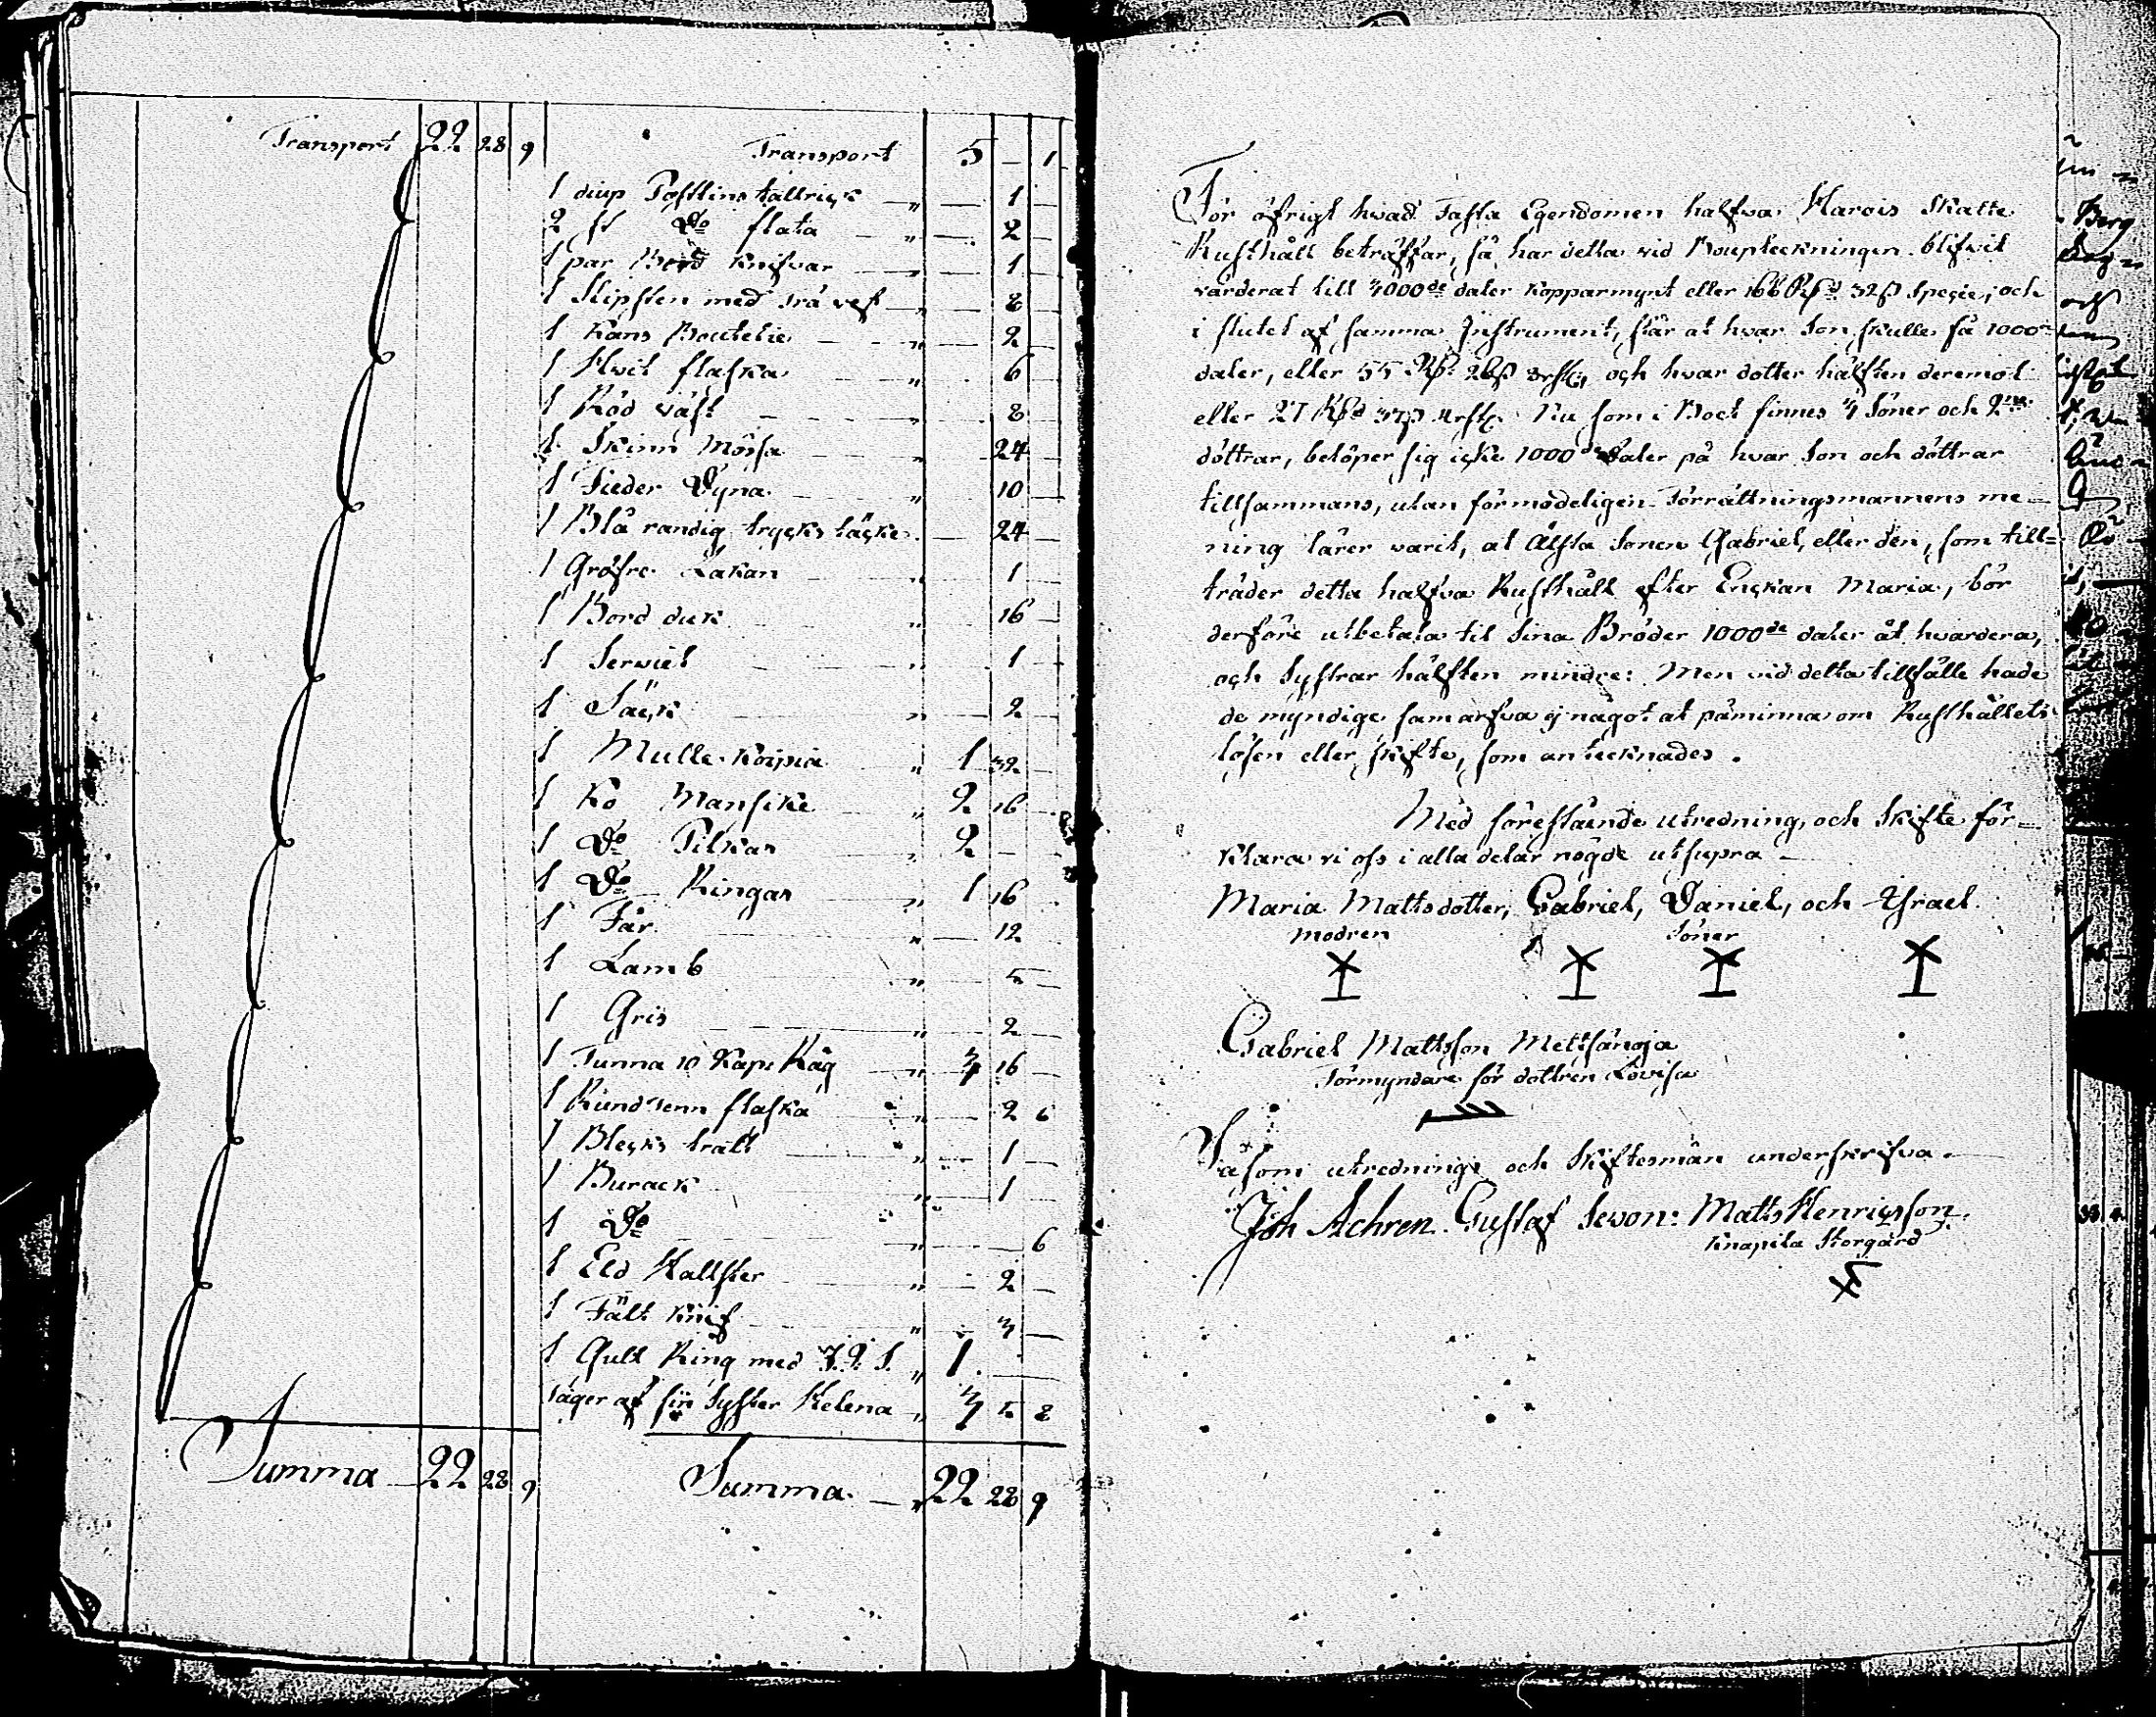 Transport 22 28 9
Summa 22 28 9
Transport 5 — 1
1 diup Postlins tallrick " — 1 —
2 st Do flata " — 2 —
1 par Bord knifvar " — 1 —
1 Slipsten med trä vef " — 8 —
1 Kans Boutelie " — 2 —
1 Hvit flaska " 6
1 Röd väst " 8 —
1 Skinn Mössa " 24
1 Fieder Dyna " 10 —
1 Blå randig trycks täcke — 24 —
1 Gröfre Lakan " 1 —
1 Bord duk " 16 —
1 Serviet " 1 —
1 Säck " — 2 —
1 Mulle koipia " 1 32 —
1 Ko Mansike " 2 16
1 Do Pilkas " 2 —
1 Do Ringas " 1 16
1 Får " — 12
1 Lamb " 5 —
1 Gris " 2 —
1 Tunna 10 Kap: Råg " 4 16 —
1 Rund tenn flaska " — 2 6
1 Blecks tratt " — 1 —
1 Burack " — 1 —
1 Do " — 6
1 Eld Kallster " — 2 —
1 Fält knif " 4 —
1 Guld Ring med I. G. S. " 1 —
säger af sin Syster Helena " 4 5 8
Summa — " 22 28 9
För öfrigt hvad Fasta Egendomen halfva Harois Skatte
Rusthåll beträffar, så har detta vid Boupteckningen blifvit
värderat till 4000de daler Kopparmynt eller 166 Rd 32 ß Specie; och
i slutet af samma Instrument, står at hvar Son skulle få 1000de
daler, eller 55 Rd 26 ß 8 rst, och hvar dotter hälften deremot
eller 27 Rd 37 ß 4 rst. Nu som i Boet finnes 4 Söner och 2ne
döttrar, belöper sig icke 1000de Daler på hvar Son och döttrar
tillsammans, utan förmodeligen Förrättningsmannens me-
ning lärer varit, at Älsta Sonen Gabriel, eller den, som till=
träder detta halfva Rusthåll efter Enckan Maria, bör
derföre utbetala til Sina Bröder 1000de daler åt hvardera,
och Systrar hälften mindre: Men vid detta tillfälle hade
de myndige samarfva ej något at påminna om Rusthållets
lösen eller skifte, som antecknades.
Med förestående utredning, och Skifte för-
klara vi oss i alla delar nögde utsupra —
Maria Mattsdotter, Gabriel, Daniel, och Israel.
modren Söner
Gabriel Mattsson Mettsänoja
Förmyndare för dottren Lovisa
Såsom utrednings och Skiftesmän underskrifva.
Joh Achren. Gustaf Sevon: Matts Henricsson
Knapila Storgård